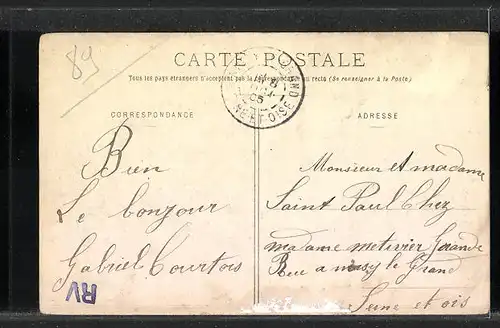 89
CARTE POSTALE
Tous les pays étrangers n'acceptent pas la Correspondance au recto (Se renseigner à la Poste)
CORRESPONDANCE
ADRESSE
Bien
Le bonjour
Gabriel Courtois
Monsieur et madame
Saint Paul Chez
madame metivier Grande
Rue a massy le Grand
Seine et ois
05
ET-OISE
RV